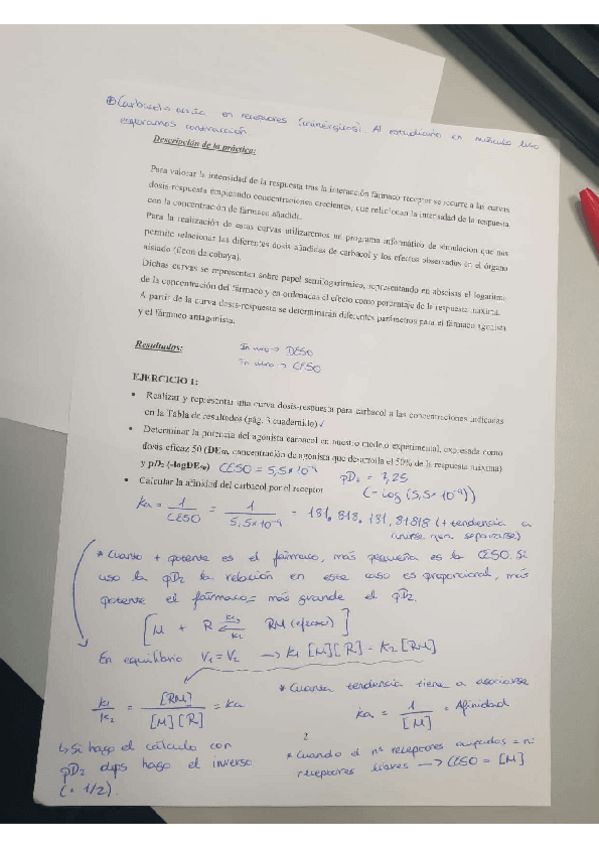 ⊛ Carbacol actúa en receptores (colinérgicos). Al estudiarlo en músculo liso
esperamos contracción
Descripción de la práctica:
Para valorar la intensidad de la respuesta tras la interacción fármaco receptor se recurre a las curvas
dosis-respuesta empleando concentraciones crecientes, que relacionan la intensidad de la respuesta
con la concentración de fármaco añadida.
Para la realización de estas curvas utilizaremos un programa informático de simulación que nos
permite relacionar las diferentes dosis añadidas de carbacol y los efectos observados en el órgano
aislado (íleon de cobaya).
Dichas curvas se representan sobre papel semilogarítmico, representando en abscisas el logaritmo
de la concentración del fármaco y en ordenadas el efecto como porcentaje de la respuesta máxima.
A partir de la curva dosis-respuesta se determinarán diferentes parámetros para el fármaco agonista
y el fármaco antagonista.
Resultados:
In vivo → DE50
In vitro → CE50
EJERCICIO 1:
• Realizar y representar una curva dosis-respuesta para carbacol a las concentraciones indicadas
en la Tabla de resultados (pág. 3 cuadernillo) ✓
• Determinar la potencia del agonista carbacol en nuestro modelo experimental, expresada como
dosis eficaz 50 (DE50, concentración de agonista que desarrolla el 50% de la respuesta máxima)
y pD2 (-logDE50) CE50 = 5,5×10⁻⁹ pD2 =
(-log (5,5×10⁻⁹))
• Calcular la afinidad del carbacol por el receptor
Ka = 1/CE50 = 1/5,5×10⁻⁹ = 181.818.181,81818 (+ tendencia a
unirse que separarse)
* Cuanto + potente es el fármaco, más pequeña es la CE50. Si
uso la pD2 la relación en este caso es proporcional, más
potente el fármaco = más grande el pD2.
[M + R ⇌ RM (efecto)]
En equilibrio V1 = V2 → K1 [M][R] = K2 [RM]
k1/k2 = [RM]/[M][R] = Ka
* Cuanta tendencia tiene a asociarse
Ka = 1/[M] = Afinidad
2
↳ Si hago el cálculo con
pD2 dsps hago el inverso
(· 1/2).
* Cuando el nº receptores ocupados = nº
receptores libres → CE50 = [M]